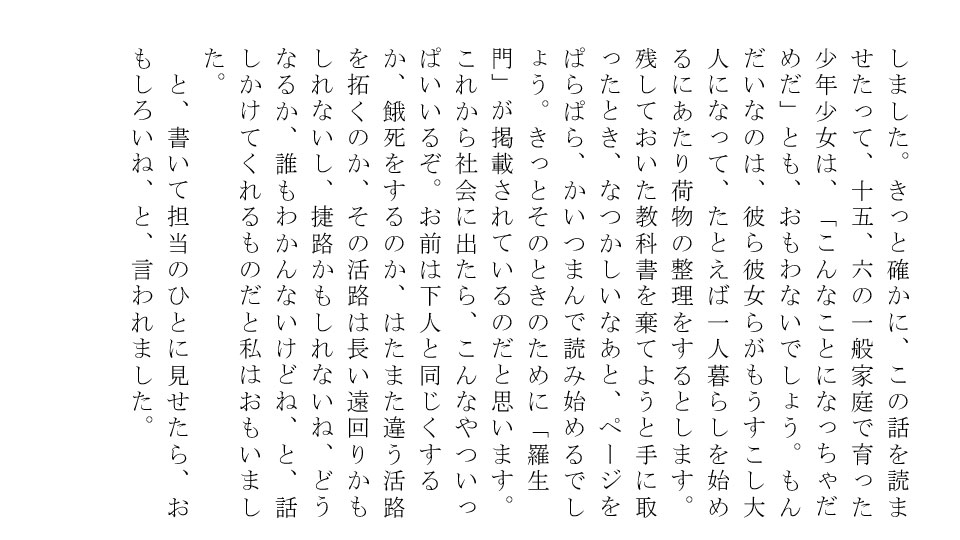 しました。きっと確かに、この話を読ま
せたって、十五、六の一般家庭で育った
少年少女は、「こんなことになっちゃだ
めだ」とも、おもわないでしょう。もん
だいなのは、彼ら彼女らがもうすこし大
人になって、たとえば一人暮らしを始め
るにあたり荷物の整理をするとします。
残しておいた教科書を棄てようと手に取
ったとき、なつかしいなあと、ページを
ぱらぱら、かいつまんで読み始めるでし
ょう。きっとそのときのために「羅生
門」が掲載されているのだと思います。
これから社会に出たら、こんなやついっ
ぱいいるぞ。お前は下人と同じくする
か、餓死をするのか、はたまた違う活路
を拓くのか、その活路は長い遠回りかも
しれないし、捷路かもしれないね、どう
なるか、誰もわかんないけどね、と、話
しかけてくれるものだと私はおもいまし
た。
　と、書いて担当のひとに見せたら、お
もしろいね、と、言われました。